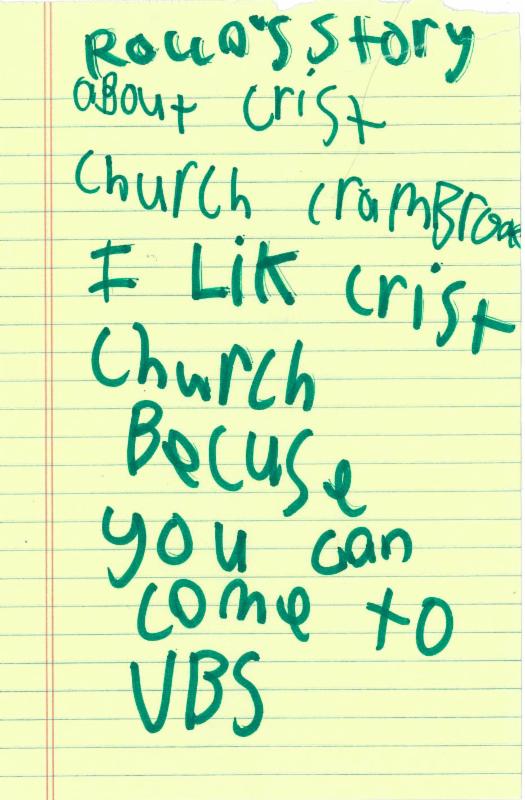 Story
aBout crist
church cramBrook
I Lik crist
church
Becuse
you can
come to
VBS